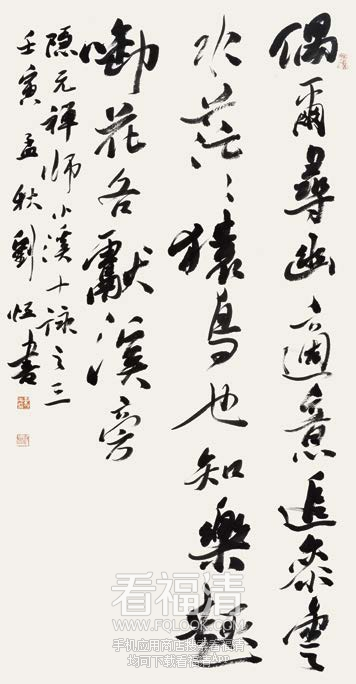 偶爾尋幽適意追參雲
水茫〻猿鳥也知樂趣
啣花各獻溪旁
隱元禪師小溪十詠之三
壬寅孟秋劉恒書
看福清
WWW.FQLOOK.COM
手机应用商店搜索看福清
均可下载看福清APP